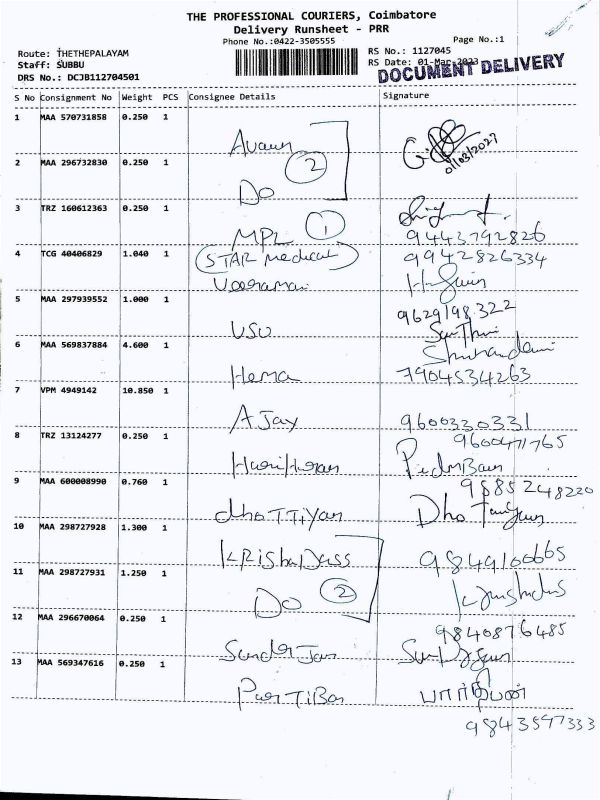 THE PROFESSIONAL COURIERS, Coimbatore
Delivery Runsheet - PRR
Phone No.:0422-3505555
Page No.:1
Route: THETHEPALAYAM
RS No.: 1127045
Staff: SUBBU
RS Date: 01-Mar-2023
DRS No.: DCJB112704501
DOCUMENT DELIVERY
S No Consignment No Weight PCS Consignee Details Signature
1 MAA 570731858 0.250 1
2 MAA 296732830 0.250 1
2
Do
3 TRZ 160612363 0.250 1
MPL 1
9443792826
4 TCG 40406829 1.040 1 STAR Medical 9942826334
Veeramani
5 MAA 297939552 1.000 1
9629198322
VSU
6 MAA 569837884 4.600 1
Hema 7904534263
7 VPM 4949142 10.850 1
AJay 9600330331
8 TRZ 13124277 0.250 1 9600471765
9 MAA 600008990 0.760 1
9885248220
dhoTTiyan
10 MAA 298727928 1.300 1
KRishaDass 9849100665
11 MAA 298727931 1.250 1
Do 2
12 MAA 296670064 0.250 1
9840876485
13 MAA 569347616 0.250 1
ParTiBan பார்திபன்
9843597333